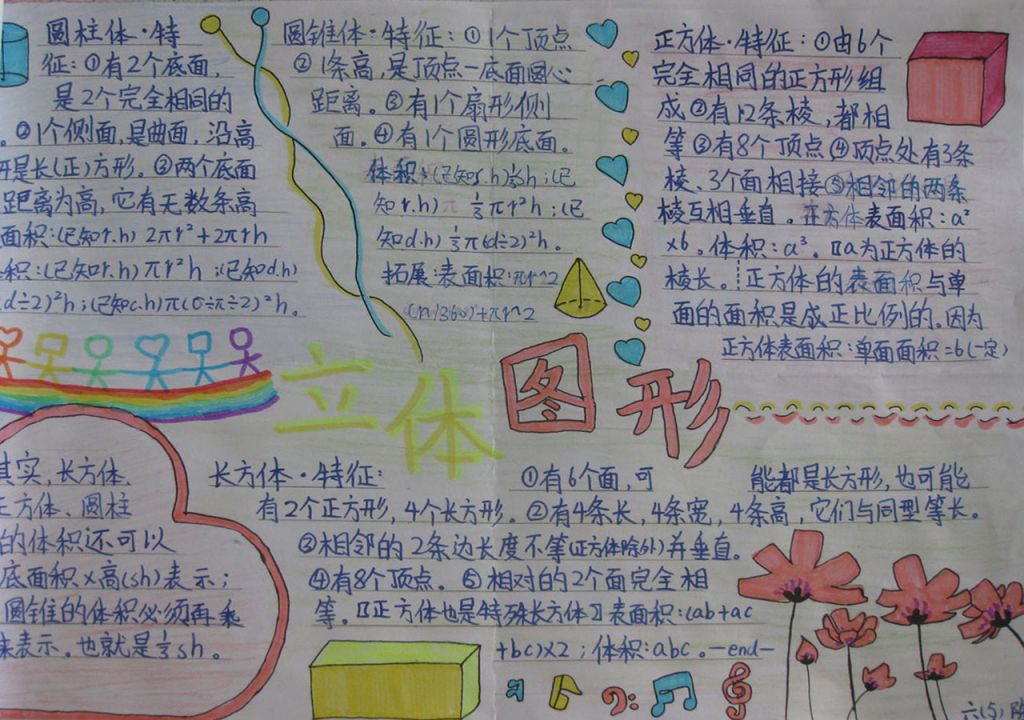 圆柱体·特
征:①有2个底面,
是2个完全相同的
。②1个侧面,是曲面,沿高
开是长(正)方形。③两个底面
距离为高,它有无数条高
面积:(已知r.h) 2πr²+2πrh
积:(已知r.h)πr²h;(已知d.h)
(d÷2)²h;(已知c.h)π(C÷π÷2)²h。
圆锥体·特征:①1个顶点
②1条高,是顶点—底面圆心
距离。③有1个扇形侧
面。④有1个圆形底面。
体积:(已知s.h)⅓sh;(已
知r.h) ⅓πr²h;(已
知d.h)⅓π(d÷2)²h。
拓展:表面积:πr^2
(n/360)+πr^2
正方体·特征:①由6个
完全相同的正方形组
成②有12条棱,都相
等③有8个顶点④顶点处有3条
棱、3个面相接⑤相邻的两条
棱互相垂直。正方体表面积:a²
×6。体积:a³。〖a为正方体的
棱长。正方体的表面积与单
面的面积是成正比例的。因为
正方体表面积:单面面积=6(一定)
立体图形
其实,长方体、
正方体、圆柱
的体积还可以
底面积×高(sh)表示;
圆锥的体积必须再乘
来表示。也就是⅓sh。
长方体·特征: ①有6个面,可 能都是长方形,也可能
有2个正方形,4个长方形。②有4条长,4条宽,4条高,它们与同型等长。
③相邻的2条边长度不等(正方体除外)并垂直。
④有8个顶点。⑤相对的2个面完全相
等。〖正方体也是特殊长方体〗表面积:(ab+ac
+bc)×2;体积:abc。-end-
六(5)